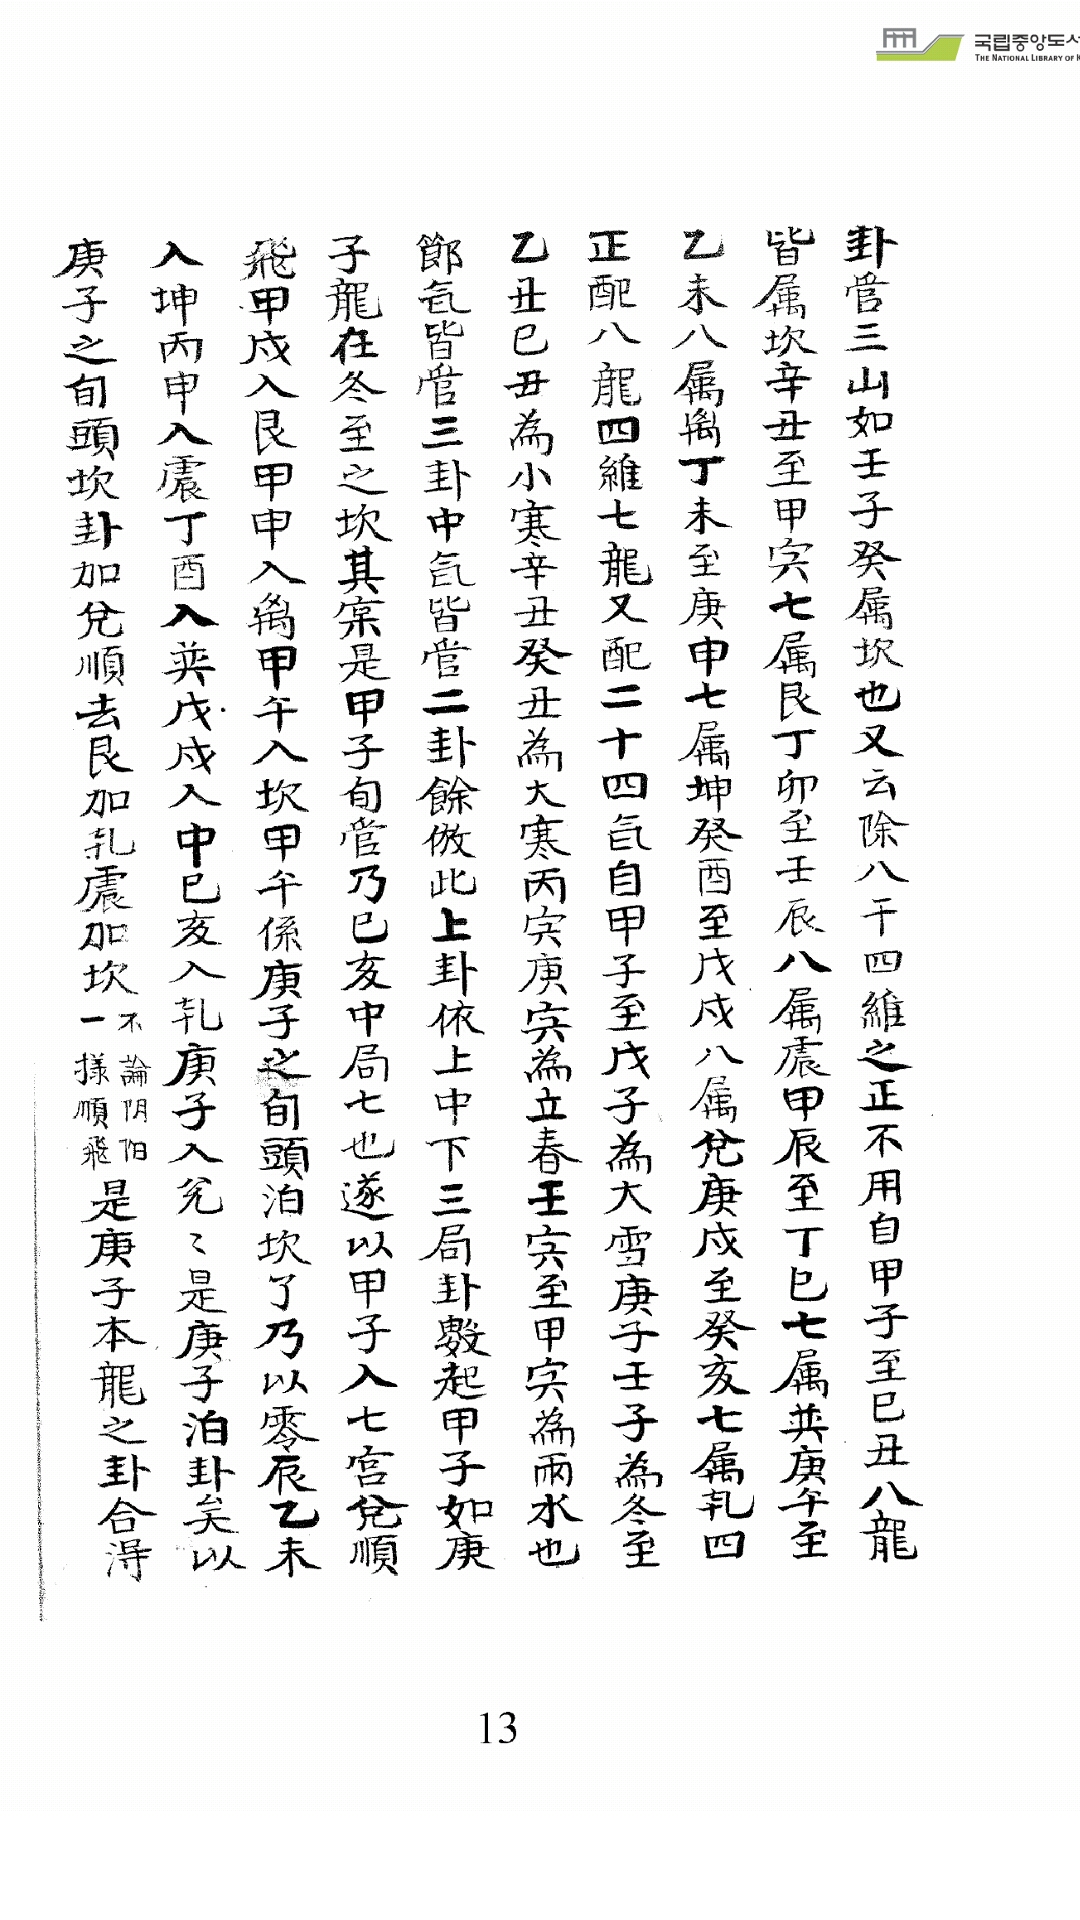 국립중앙도서
THE NATIONAL LIBRARY OF K
卦管三山如壬子癸属坎也又云除八干四維之正不用自甲子至巳丑八龍
皆属坎辛丑至甲寅七属艮丁卯至壬辰八属震甲辰至丁巳七属巽庚午至
乙未八属离丁未至庚申七属坤癸酉至戊戌八属兌庚戌至癸亥七属乹四
正配八龍四維七龍又配二十四氣自甲子至戊子為大雪庚子壬子為冬至
乙丑巳丑為小寒辛丑癸丑為大寒丙寅庚寅為立春壬寅至甲寅為雨水也
節氣皆管三卦中氣皆管二卦餘倣此上卦依上中下三局卦數起甲子如庚
子龍在冬至之坎其案是甲子旬管乃巳亥中局七也遂以甲子入七宮兌順
飛甲戌入艮甲申入离甲午入坎甲午係庚子之旬頭泊坎了乃以零辰乙未
入坤丙申入震丁酉入巽戊戌入中巳亥入乹庚子入兌〻是庚子泊卦矣以
庚子之旬頭坎卦加兌順去艮加乹震加坎不論阴阳一樣順飛是庚子本龍之卦合得
13